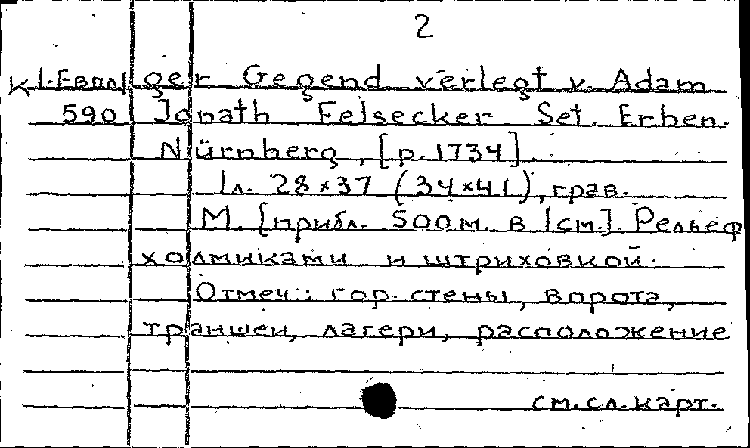 2
К 1.Евап ger Gegend verlegt v. Adam
590 Jonath Felsecker Sel. Erben.
Nürnberg, [p.1734]
1л. 28×37 (34×41), грав.
М. [прибл. 500м. в 1см.]. Рельеф
холмиками и штриховкой.
Отмеч.: гор. стены, ворота,
траншеи, лагери, расположение
см.сл.карт.